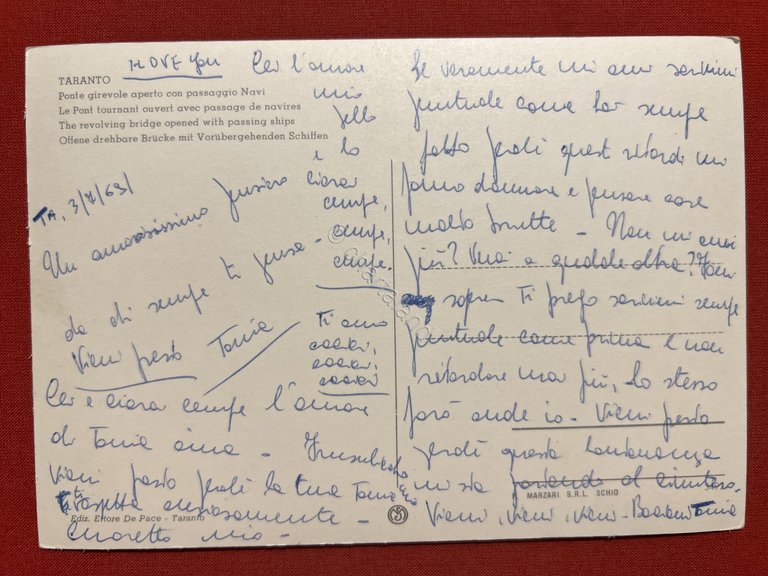 I LOVE You
TARANTO
Ponte girevole aperto con passaggio Navi
Le Pont tournant ouvert avec passage de navires
The revolving bridge opened with passing ships
Offene drehbare Brücke mit Vorübergehenden Schiffen
Cei l'amore
mio
sello
e lo
ciarai
cempe,
cempe,
cempe.
TA, 3/7/63/
Un amorosissimo pensiero
da chi sempe ti pensa -
Vieni pesto Tania
Ti amo
Cei e ciarai cempe l'amore
di Tania
Vieni pesto peché la tua Tania
ti aspetta ansiosamente -
Amoretto mio -
Se veramente mi ami scrivimi
puntuale come hai sempe
fatto peché questi ritardi mi
fanno dannare e pensare cose
molto brutte - Non mi ami
più? Vuoi a qualche altra? Fammi
sapere Ti prego scrivimi sempe
puntuale come prima e non
ritardare mai più, lo stesso
farò anche io - Vieni pesto
peché questa lontananza
mi sta portando al cimitero.
Vieni, vieni, vieni - Bacioni Tania
MARZARI S.R.L. SCHIO
Ediz. Ettore De Pace - Taranto